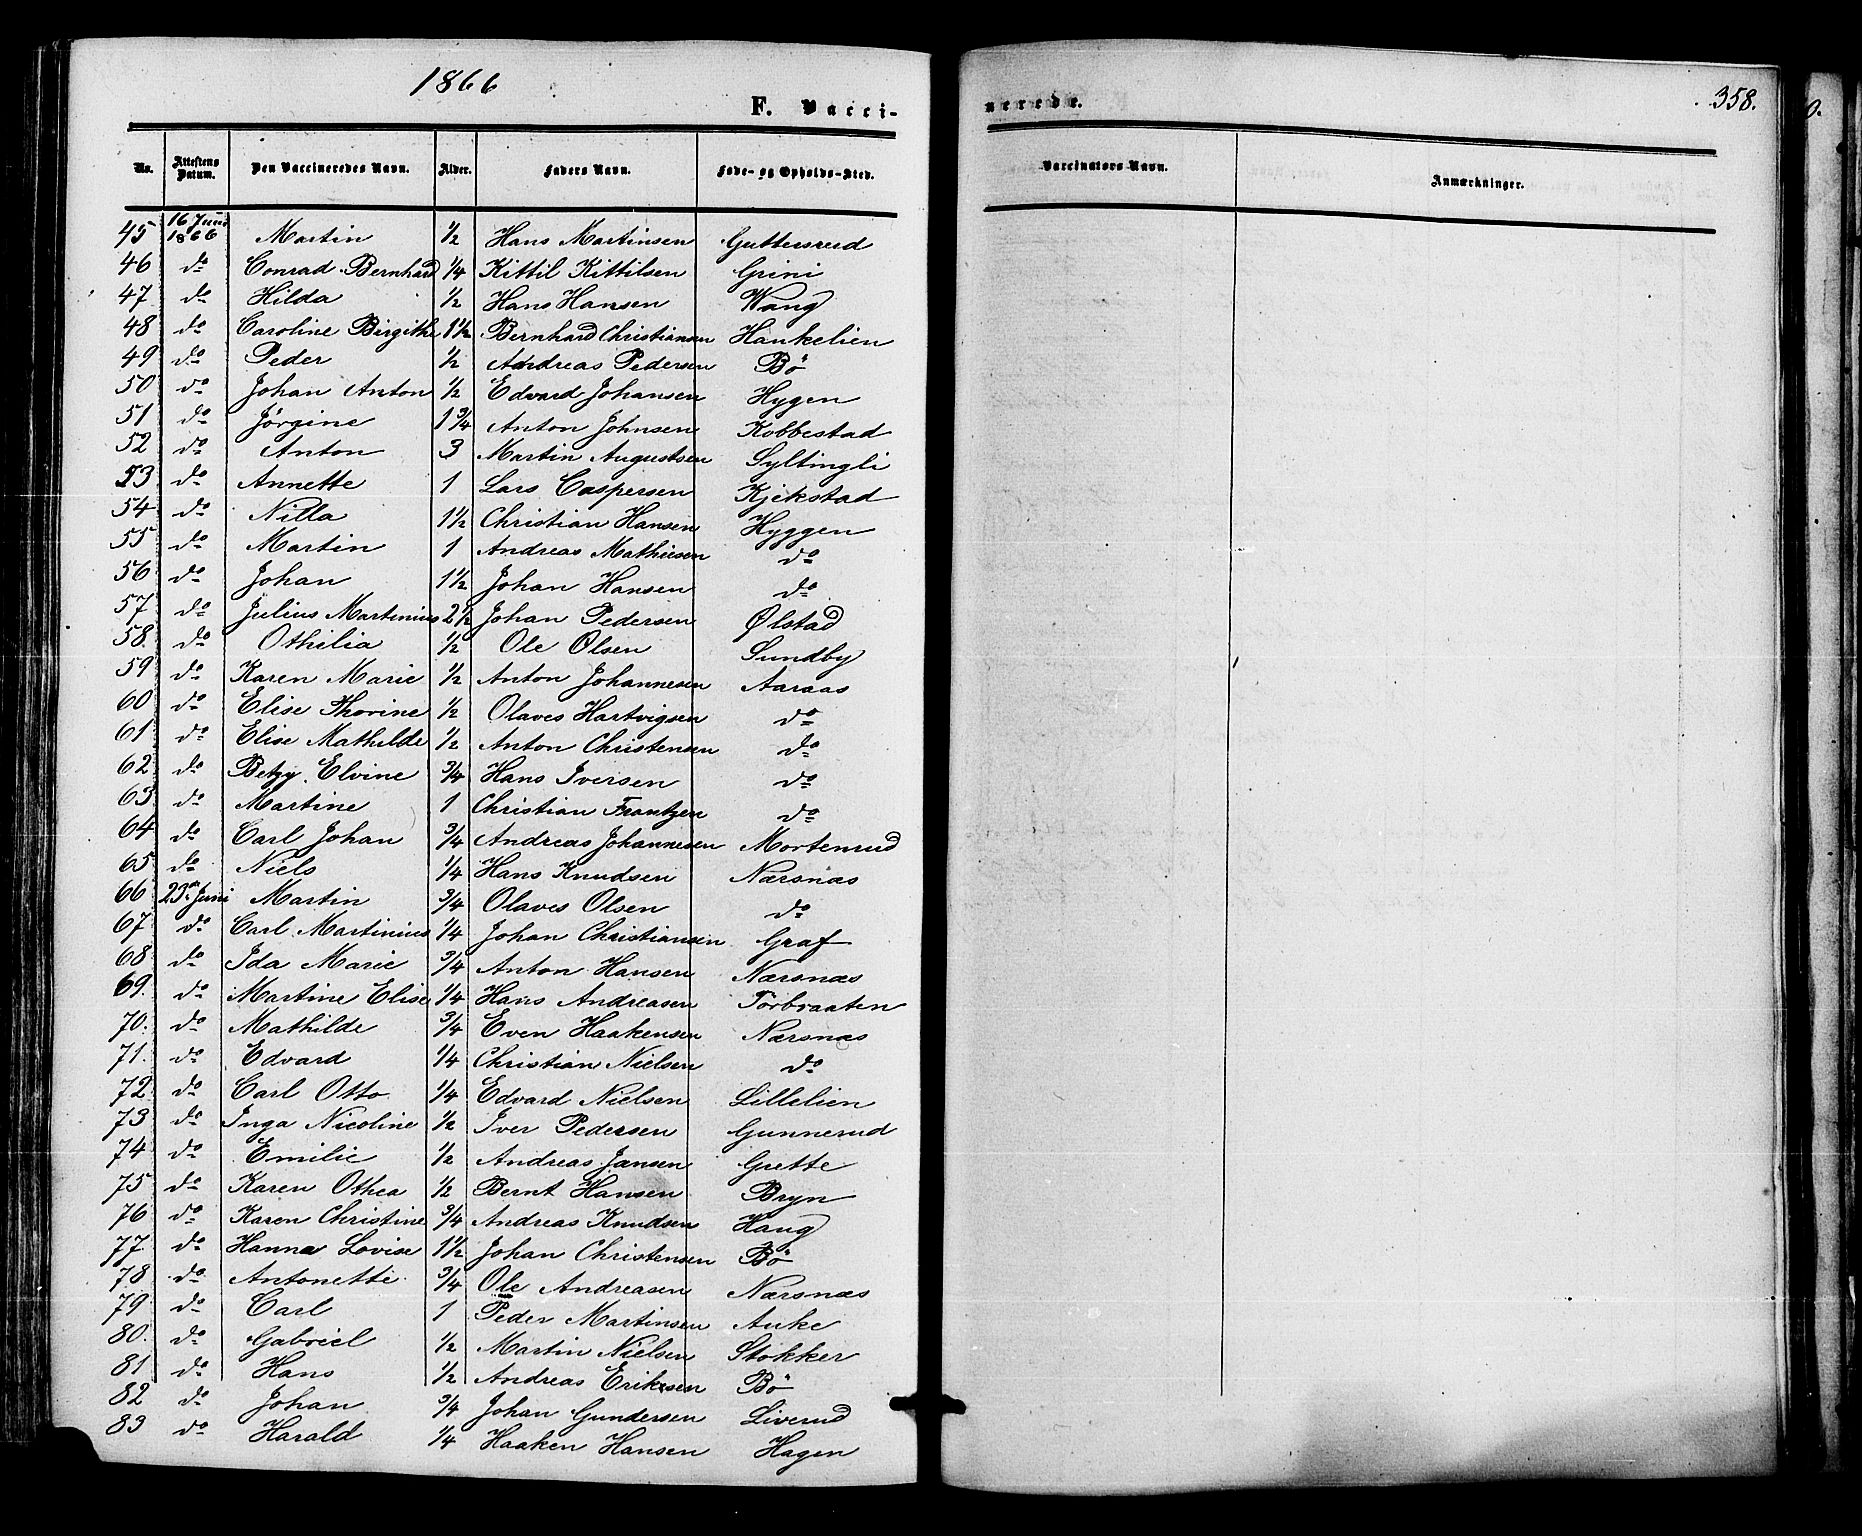 1866
F. Vacci-
No. Attestens Datum. Den Vaccineredes Navn. Alder. Faders Navn. Føde- og Opholds-Sted.
45 16 Juni 1866 Martin 1/2 Hans Martinsen Guttersrud
46 do Conrad Bernhard 1/4 Kittil Kittilsen Grini
47 do Hilda 1/2 Hans Hansen Wang
48 do Caroline Birgithe 1 1/2 Bernhard Christiansen Hankelien
49 do Peder 1/2 Andreas Pedersen Bö
50 do Johan Anton 1/2 Edvard Johansen Hygen
51 do Jørgine 1 3/4 Anton Johnsen Kobbestad
52 do Anton 3 Martin Augustsen Syltingli
53 do Annette 1 Lars Caspersen Kjekstad
54 do Nilla 1 1/2 Christian Hansen Hyggen
55 do Martin 1 Andreas Mathiesen do
56 do Johan 1 1/2 Johan Hansen do
57 do Julius Martinius 2 1/2 Johan Pedersen Ølstad
58. do Othilia 1/2 Ole Olsen Sundby
59 do Karen Marie 1/2 Anton Johannesen Aaraas
60 do Elise Thorine 1/2 Olaves Hartvigsen do
61 do Elise Mathilde 1/2 Anton Christensen do
62 do Betzy Elvine 3/4 Hans Iversen do
63 do Martine 1 Christian Frantzen do
64 do Carl Johan 3/4 Andreas Johannesen Mortenrud
65 do Niels 1/4 Hans Knudsen Nærsnæs
66 23de Juni Martin 3/4 Olaves Olsen do
67 do Carl Martinius 1/4 Johan Christiansen Graf
68 do Ida Marie 3/4 Anton Hansen Nærsnæs
69. do Martine Elise 1/4 Hans Andreasen Torbraaten
70. do Mathilde 3/4 Even Haakensen Nærsnæs
71. do Edvard 1/4 Christian Nielsen do
72 do Carl Otto 1/4 Edvard Nielsen Lillelien
73 do Inga Nicoline 1/2 Iver Pedersen Gunnerud
74 do Emilie 1/2 Andreas Jansen Grette
75 do Karen Othea 1/2 Bernt Hansen Bryn
76 do Karen Christine 3/4 Andreas Knudsen Haug
77 do Hanna Lovise 1 1/2 Johan Christensen Bö
78 do Antonette 3/4 Ole Andreasen Nærsnæs
79 do Carl 1 Peder Martinsen Auke
80. do Gabriel 1/2 Martin Nielsen Stokker
81 do Hans 1/2 Andreas Eriksen Bö
82 do Johan 3/4 Johan Gundersen Liverud
83 do Harald 1/4 Haaken Hansen Hagen
nerede.
358.
Vaccinators Navn. Anmærkninger.